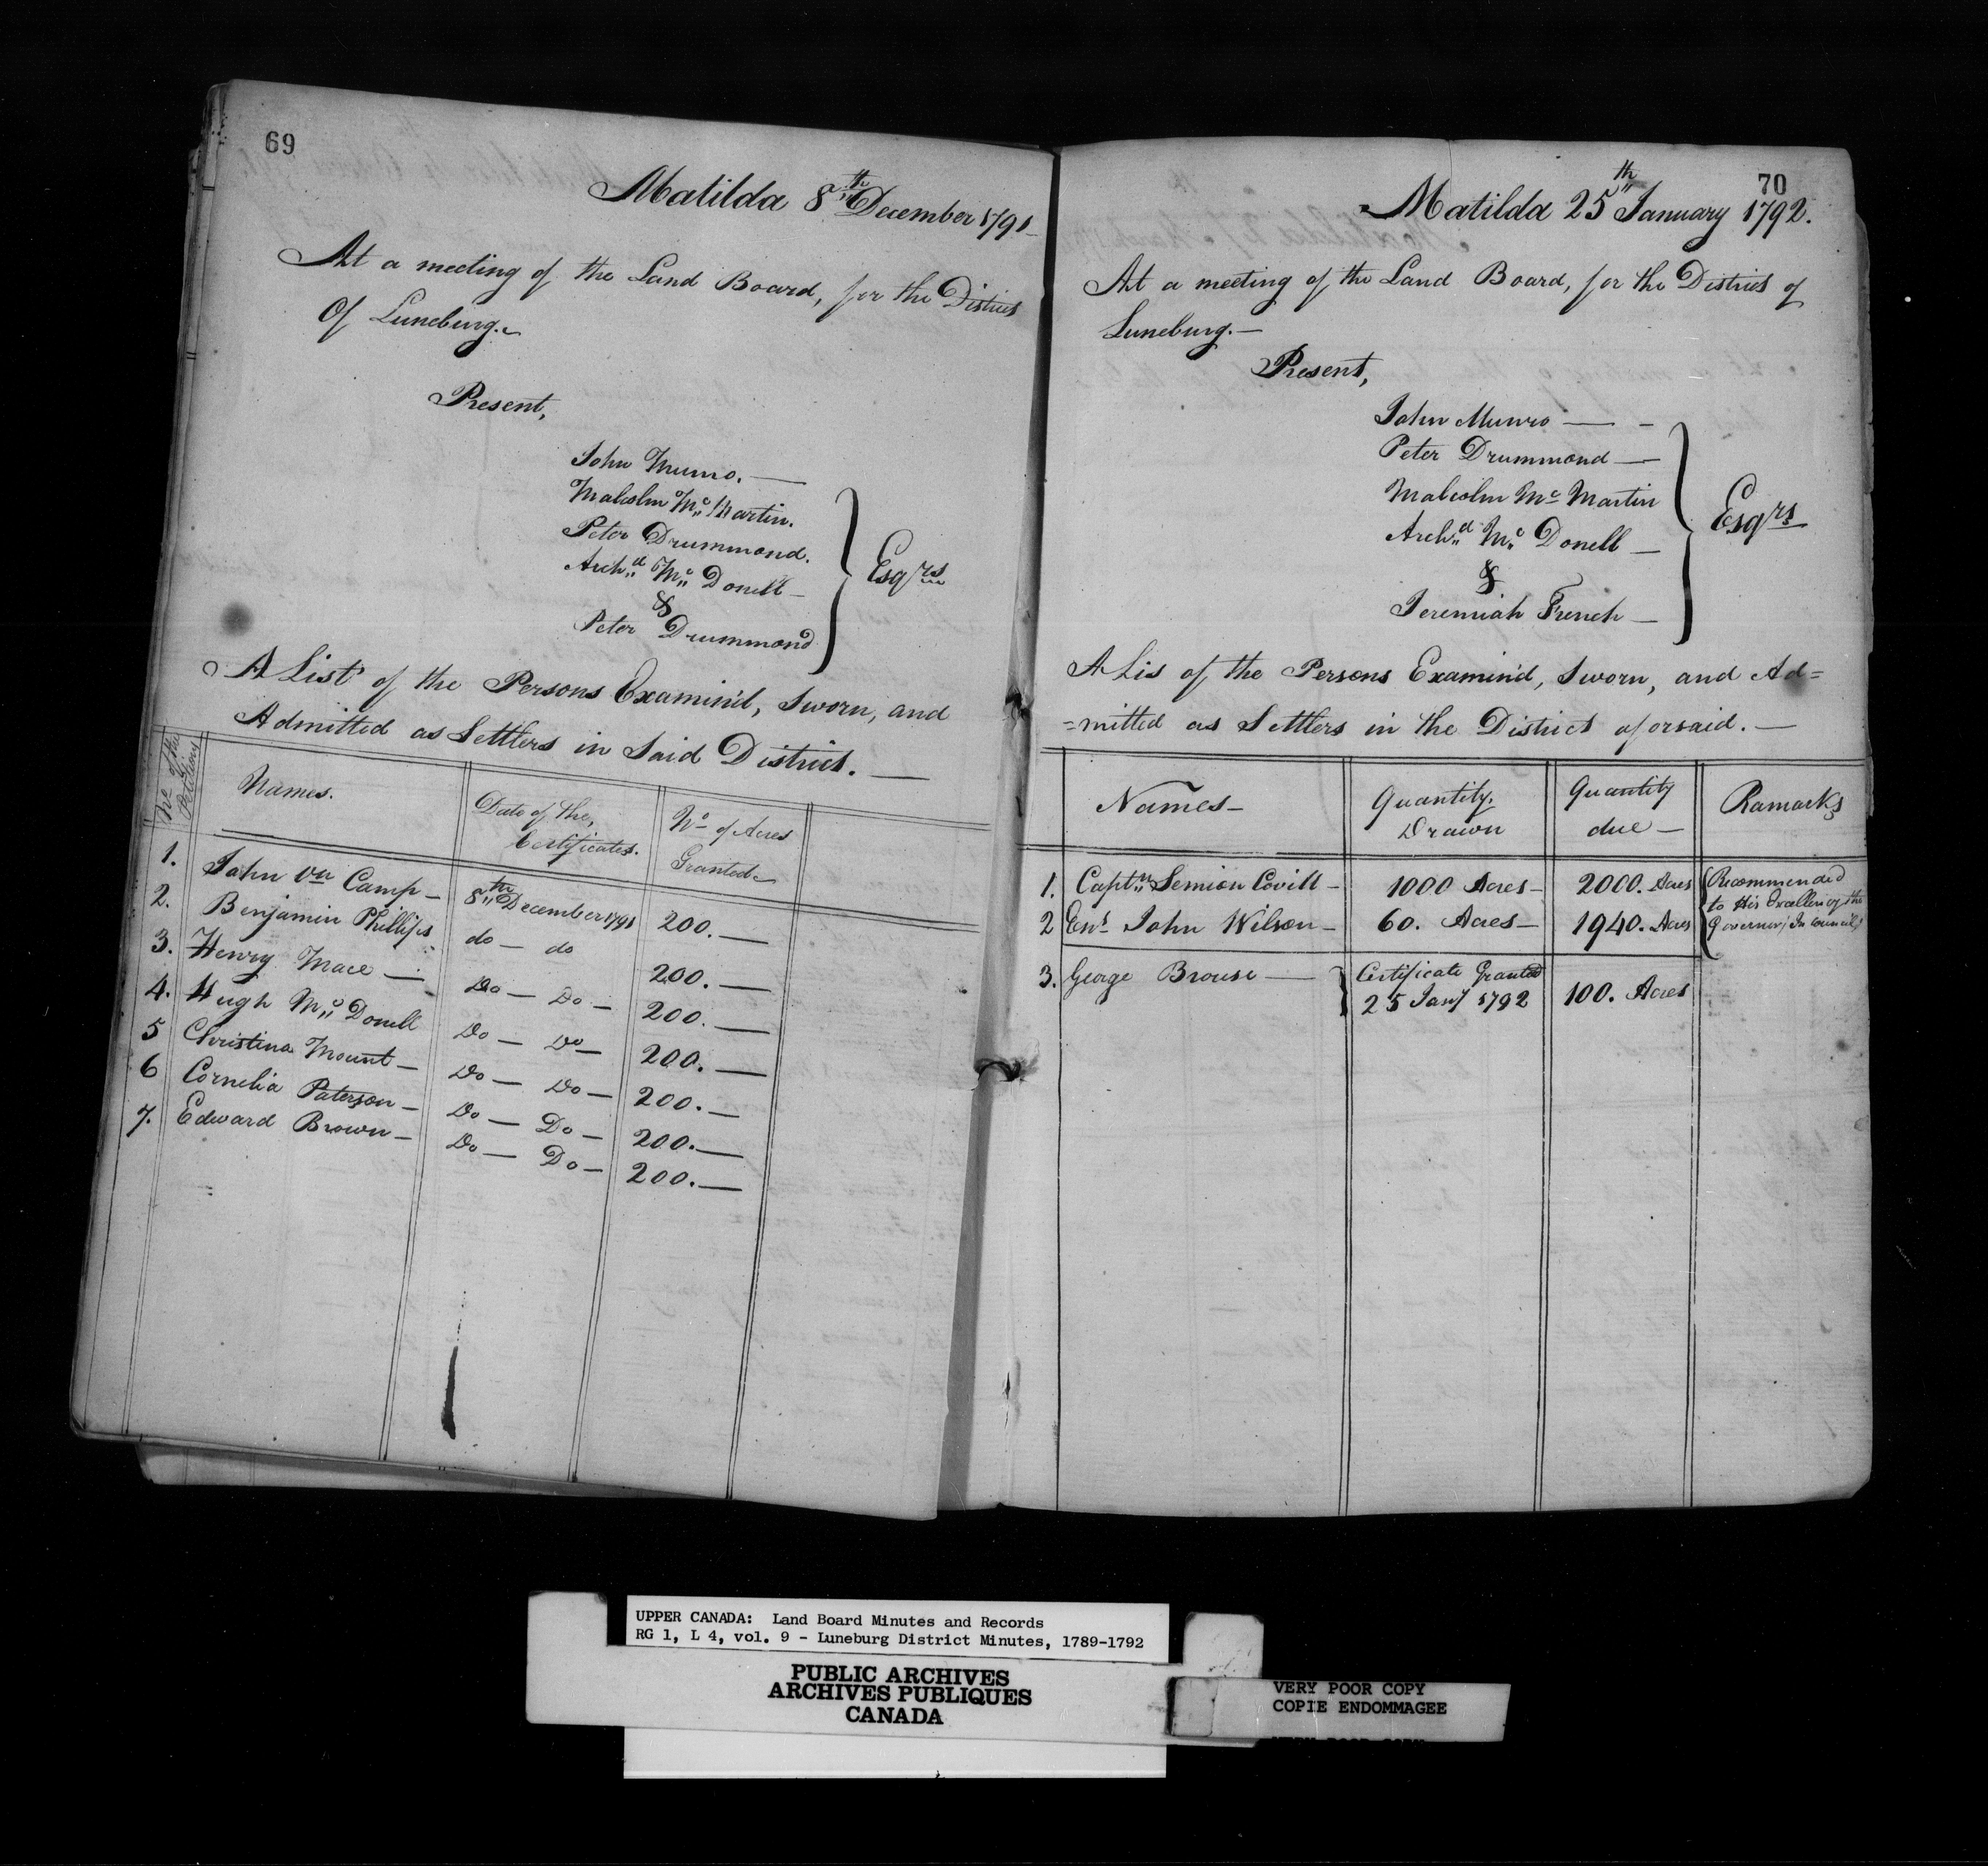 69
Matilda 8th December 1791
At a meeting of the Land Board, for the District
Of Luneburg.
Present,
John Munro.
Malcolm Mc Martin.
Peter Drummond.
Archd Mc Donell
&
Peter Drummond
Esqrs
A List of the Persons Examin'd, Sworn, and
Admitted as Settlers in Said District.
No of the Petitions | Names. | Date of the Certificates. | No of Acres Granted
1. John Vn Camp 8th December 1791 200.
2. Benjamin Phillips do do 200.
3. Henry Mace Do Do 200.
4. Hugh Mc Donell Do Do 200.
5 Christina Mount Do Do 200.
6 Cornelia Paterson Do Do 200.
7. Edward Brown Do Do 200.
70
Matilda 25th January 1792.
At a meeting of the Land Board, for the District of
Luneburg.
Present,
John Munro
Peter Drummond
Malcolm Mc Martin
Archd Mc Donell
&
Jeremiah French
Esqrs
A Lis of the Persons Examin'd, Sworn, and Ad=
=mitted as Settlers in the District aforsaid.
Names | Quantity Drawn | Quantity due | Ramarks
1. Captn Semion Covill 1000 Acres 2000. Acres
2 Ens John Wilson 60. Acres 1940. Acres
Recommended
to His Excellency the
Governor In Council
3. George Brouse Certificate Granted 25 Jany 1792 100. Acres
UPPER CANADA: Land Board Minutes and Records
RG 1, L 4, vol. 9 - Luneburg District Minutes, 1789-1792
PUBLIC ARCHIVES
ARCHIVES PUBLIQUES
CANADA
VERY POOR COPY
COPIE ENDOMMAGEE